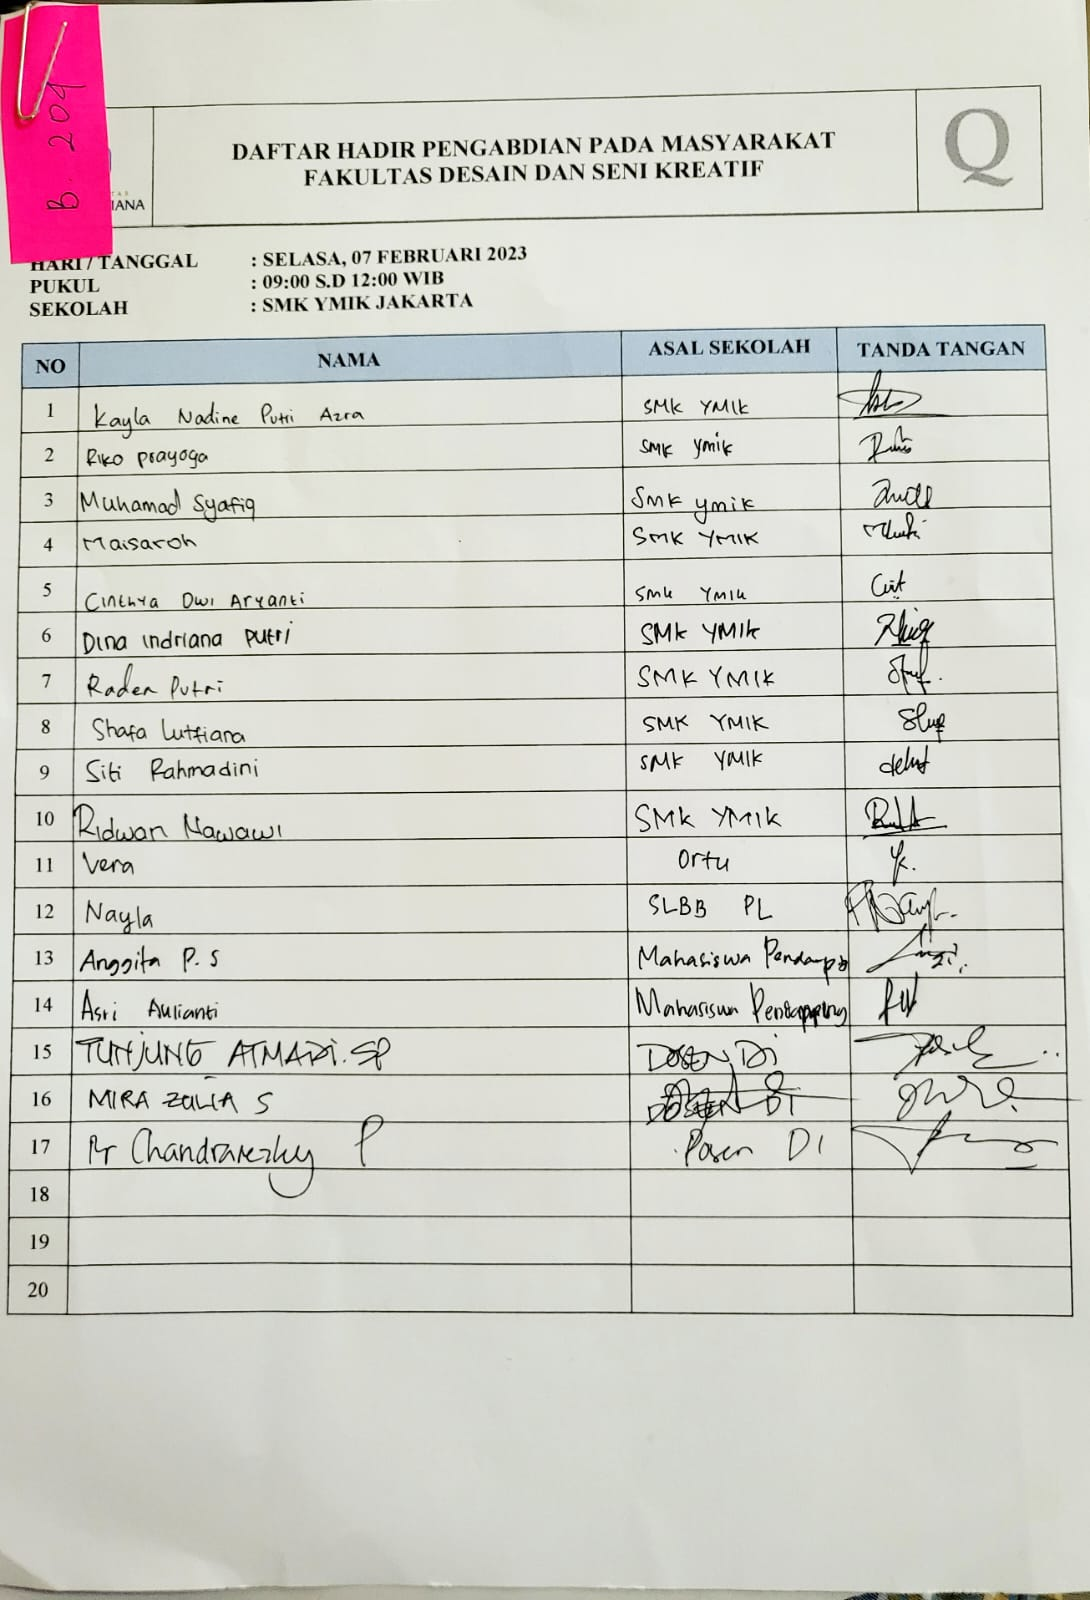 B. 204
IANA
DAFTAR HADIR PENGABDIAN PADA MASYARAKAT
FAKULTAS DESAIN DAN SENI KREATIF
Q
HARI / TANGGAL : SELASA, 07 FEBRUARI 2023
PUKUL : 09:00 S.D 12:00 WIB
SEKOLAH : SMK YMIK JAKARTA
NO NAMA ASAL SEKOLAH TANDA TANGAN
1 Kayla Nadine Putri Azra SMK YMIK
2 Riko prayoga SMK ymik
3 Muhamad Syafiq Smk ymik
4 Maisaroh SMK YMIK
5 Cinthya Dwi Aryanti SMK YMIK
6 Dina indriana putri SMK YMIK
7 Raden Putri SMK YMIK
8 Shafa Lutfiana SMK YMIK
9 Siti Rahmadini SMK YMIK
10 Ridwan Nawawi SMK YMIK
11 Vera Ortu
12 Nayla SLBB PL
13 Anggita P. S Mahasiswa
14 Asri Aulianti
15 TUNJUNG ATMADI. SP DOSEN DI
16 MIRA ZULIA S DOSEN DI
17 P Dosen DI
18
19
20